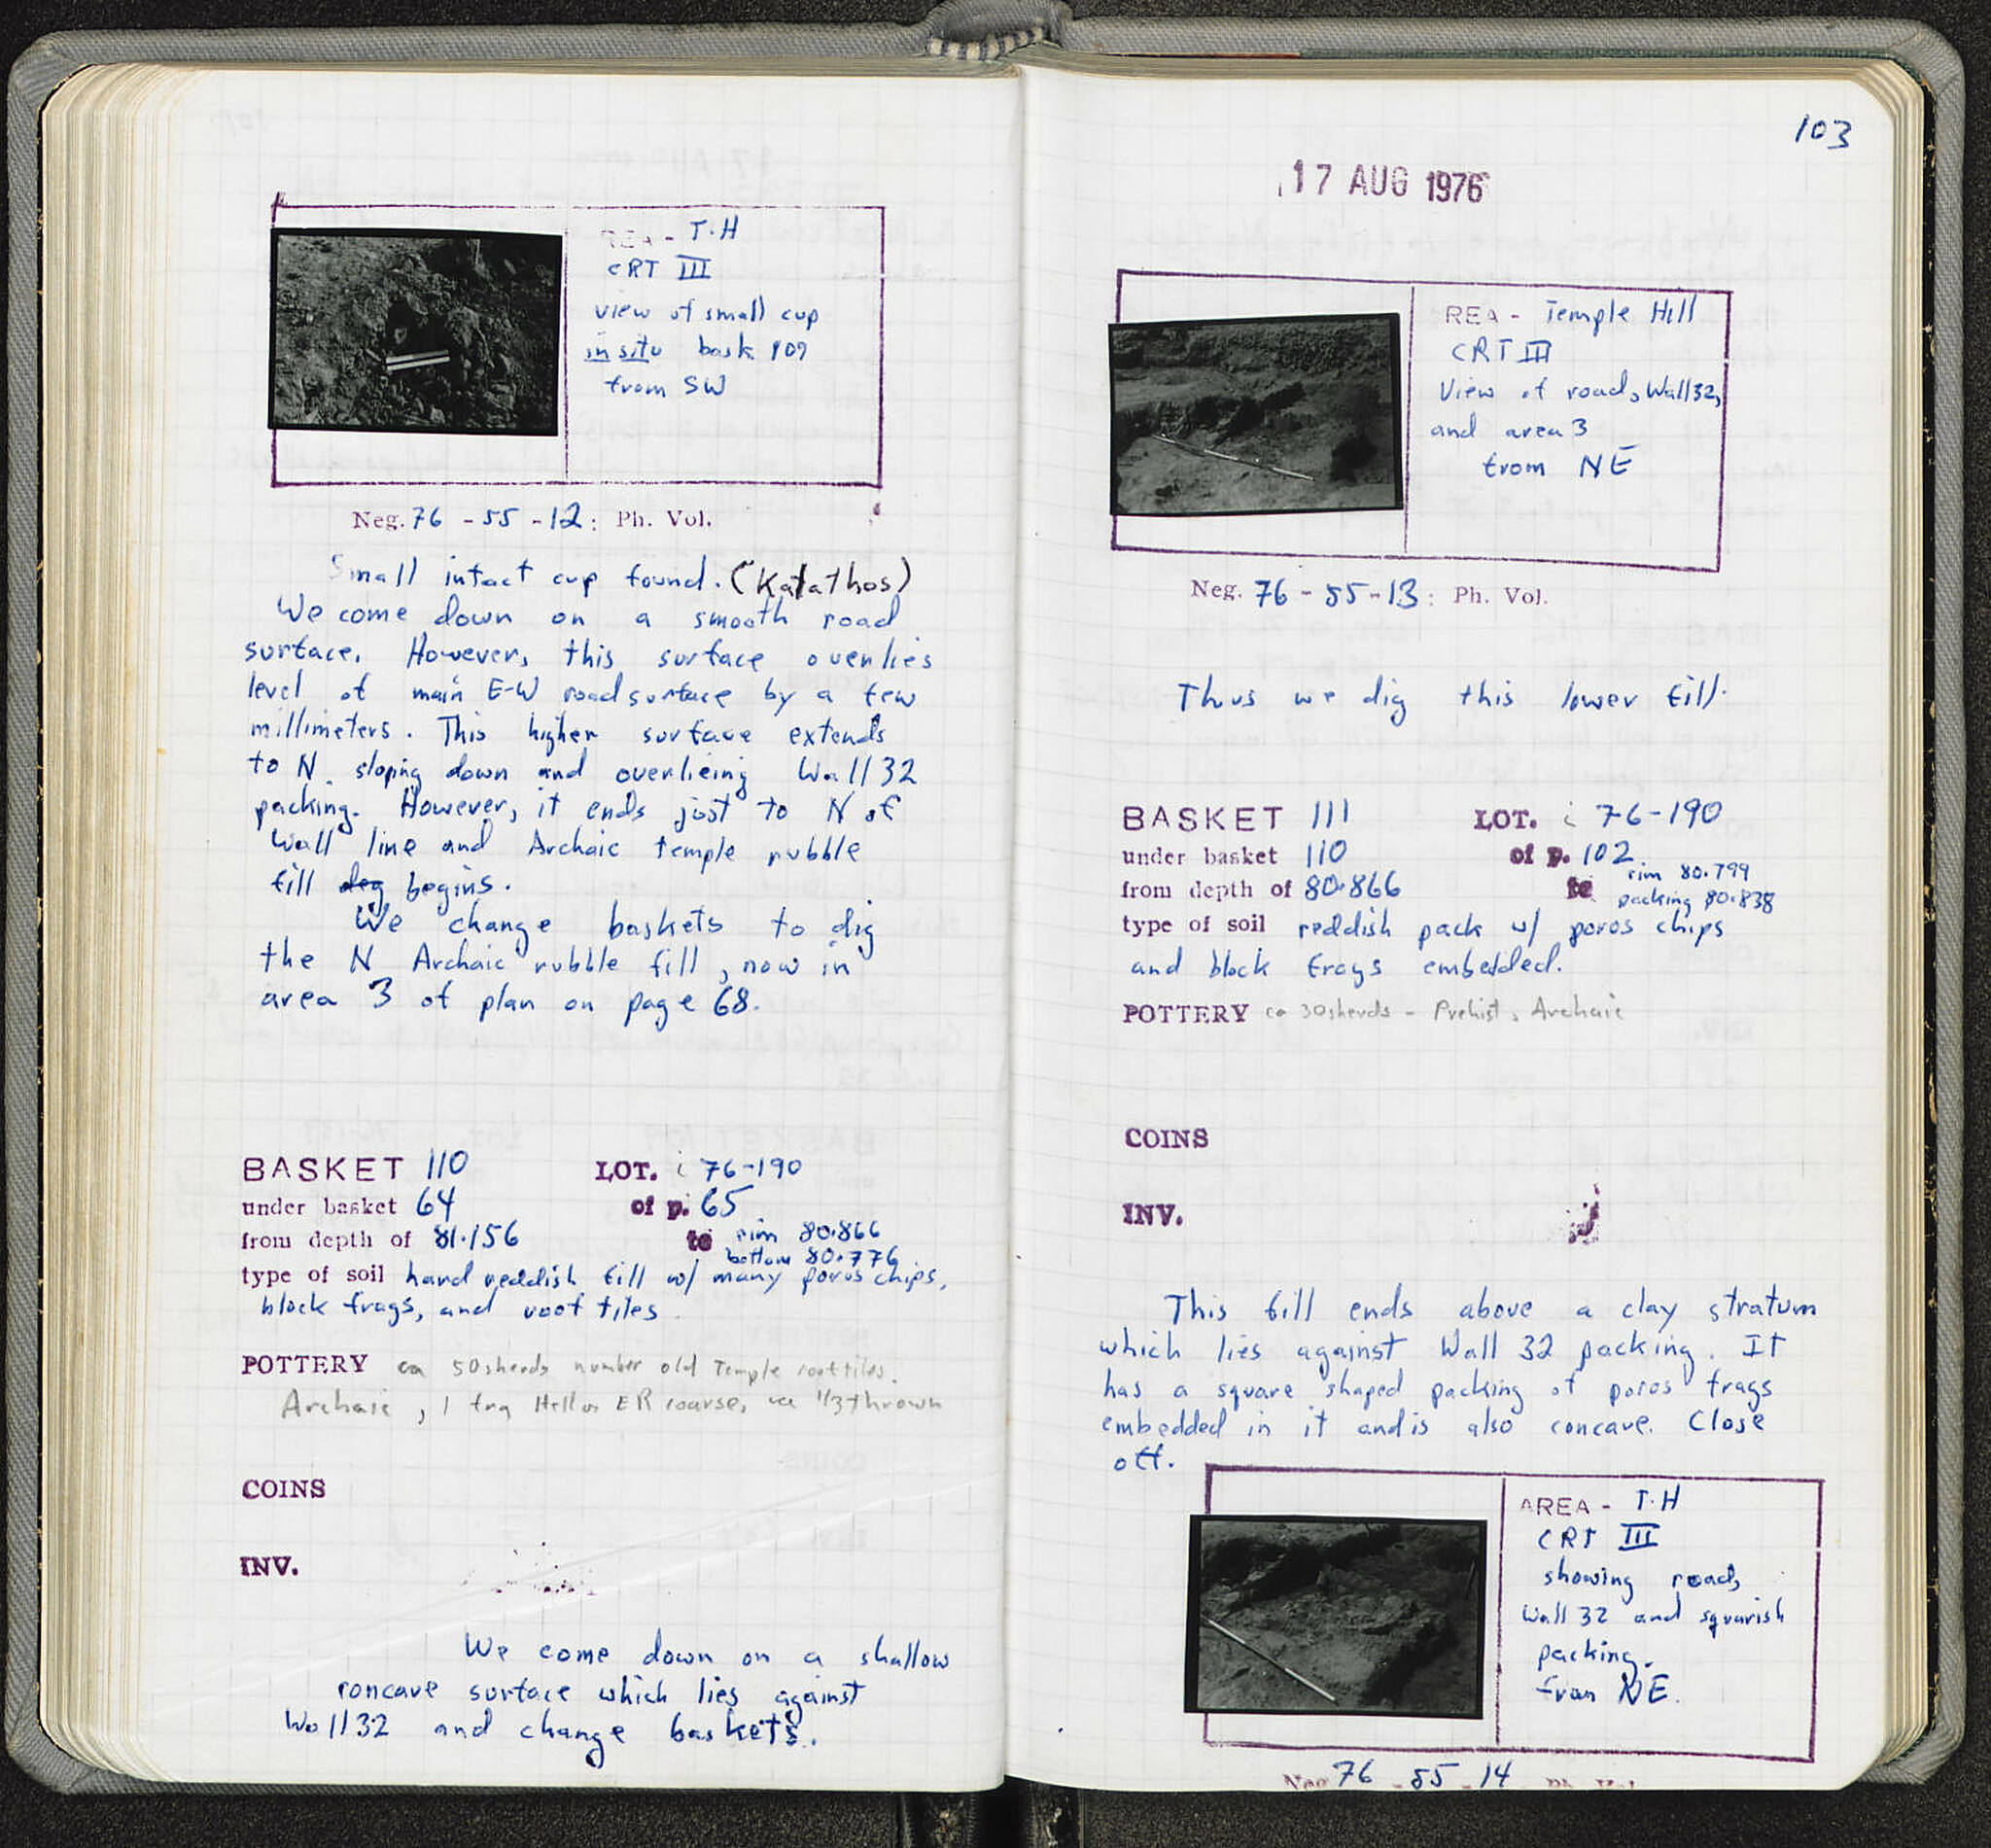 REA - T.H
CRT III
view of small cup
in situ bask 109
from SW
Neg. 76 - 55 - 12 : Ph. Vol.
Small intact cup found. (Kalathos)
We come down on a smooth road
surface. However, this surface overlies
level of main E-W road surface by a few
millimeters. This higher surface extends
to N. sloping down and overlieing Wall 32
packing. However, it ends just to N of
Wall line and Archaic temple rubble
fill deg begins.
We change baskets to dig
the N Archaic rubble fill, now in
area 3 of plan on page 68.
BASKET 110 LOT. i 76-190
under basket 64 of p. 65
from depth of 81.156 to rim 80.866
bottom 80.776
type of soil hard reddish fill w/ many poros chips,
block frags, and roof tiles
POTTERY ca 50 sherds number old Temple rooftiles.
Archaic, 1 frg Hell or ER coarse, ca 1/3 thrown
COINS
INV.
We come down on a shallow
concave surface which lies against
Wall 32 and change baskets.
103
17 AUG 1976
REA - Temple Hill
CRT III
View of road, Wall 32,
and area 3
from NE
Neg. 76 - 55 - 13 : Ph. Vol.
Thus we dig this lower fill.
BASKET 111 LOT. i 76-190
under basket 110 of p. 102
from depth of 80.866 to rim 80.799
packing 80.838
type of soil reddish pack w/ poros chips
and block frags embedded.
POTTERY ca 30 sherds - Prehist, Archaic
COINS
INV.
This fill ends above a clay stratum
which lies against Wall 32 packing. It
has a square shaped packing of poros frags
embedded in it and is also concave. Close
off.
AREA - T.H
CRT III
showing road,
Wall 32 and squarish
packing.
from NE.
Neg 76 - 55 - 14 Ph. Vol.